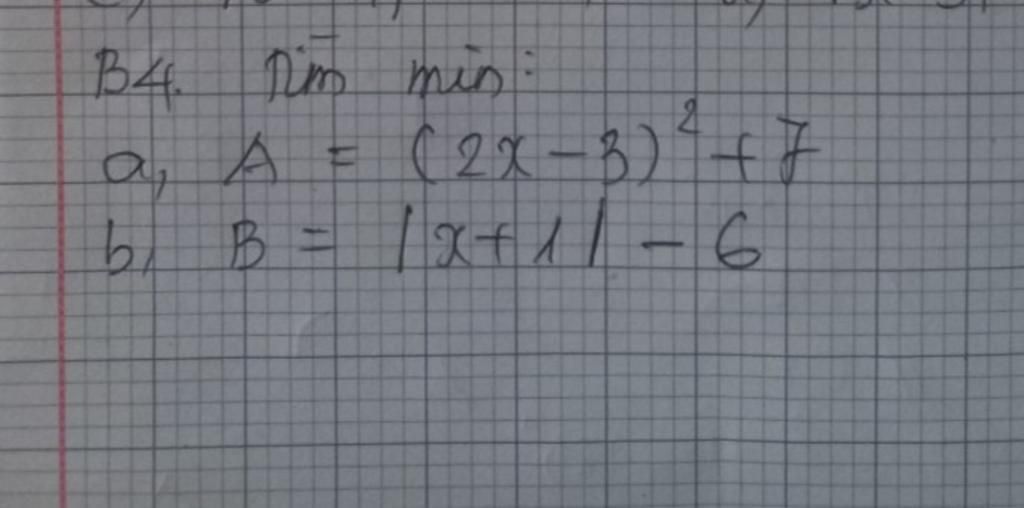 B4. Tìm min:
a, A = (2x - 3)² + 7
b, B = |x + 1| - 6